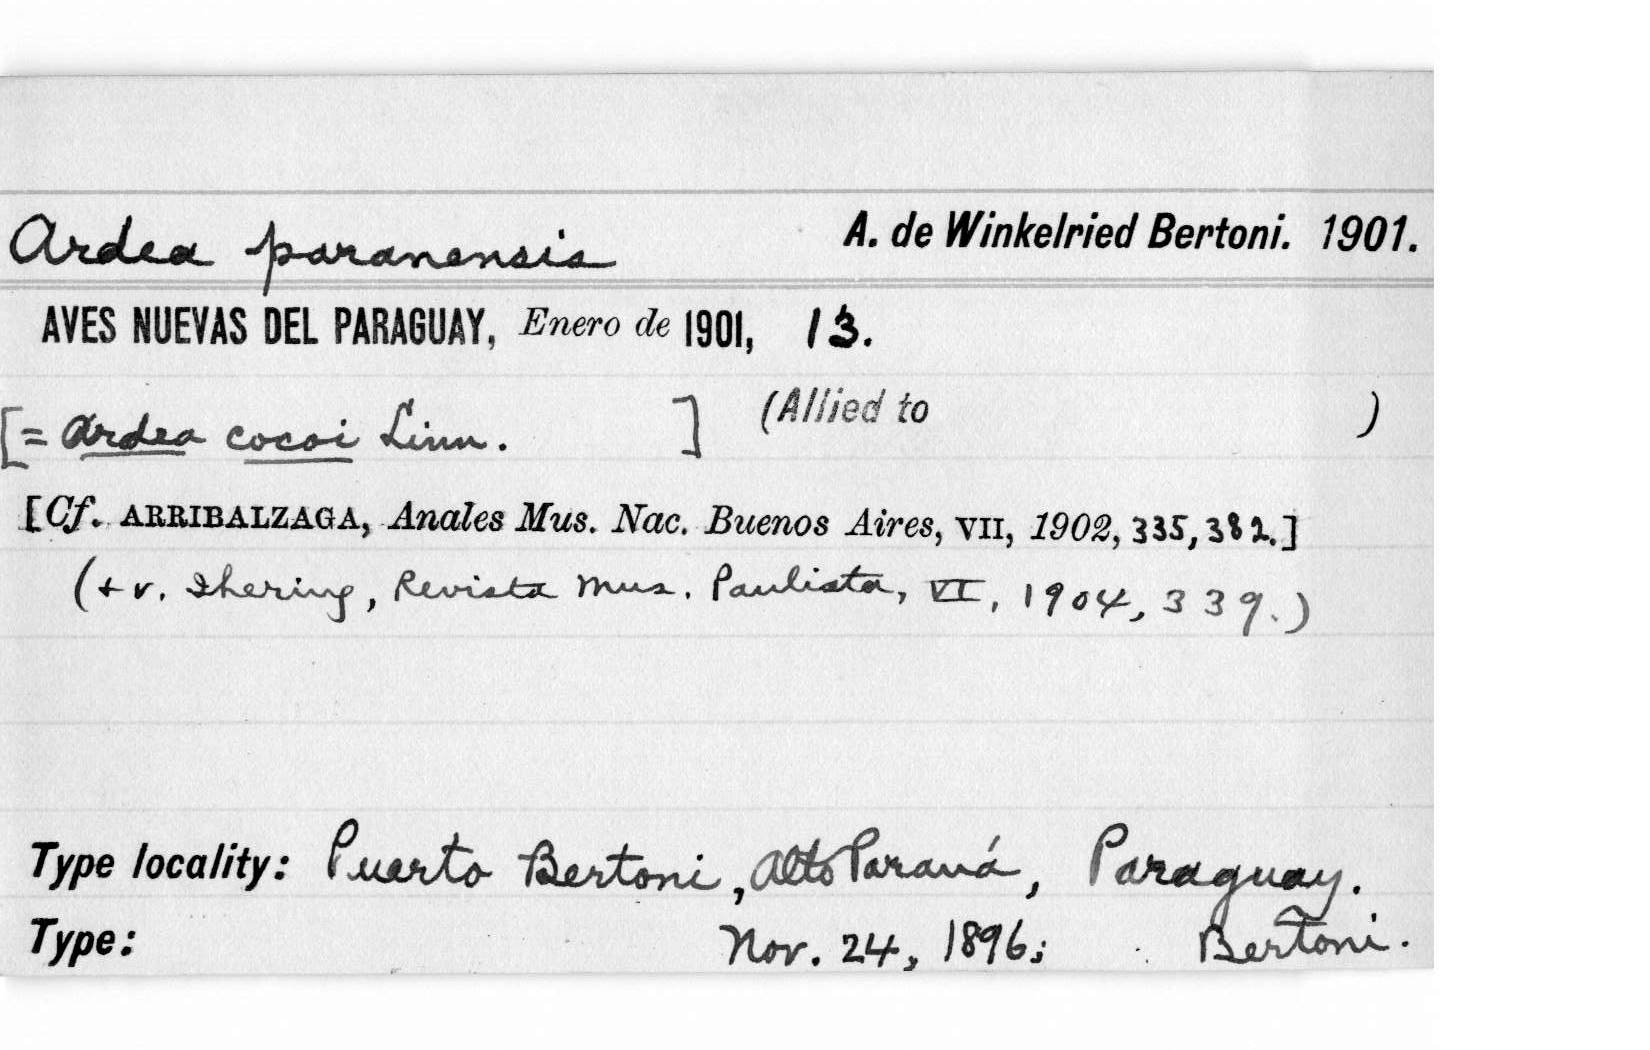 Ardea paranensis A. de Winkelried Bertoni. 1901.
AVES NUEVAS DEL PARAGUAY, Enero de 1901, 13.
[= Ardea cocoi Linn. ] (Allied to )
[Cf. ARRIBALZAGA, Anales Mus. Nac. Buenos Aires, VII, 1902, 335, 382.]
(+ v. Ihering, Revista Mus. Paulista, VI, 1904, 339.)
Type locality: Puerto Bertoni, Alto Paraná, Paraguay.
Type: Nov. 24, 1896; Bertoni.